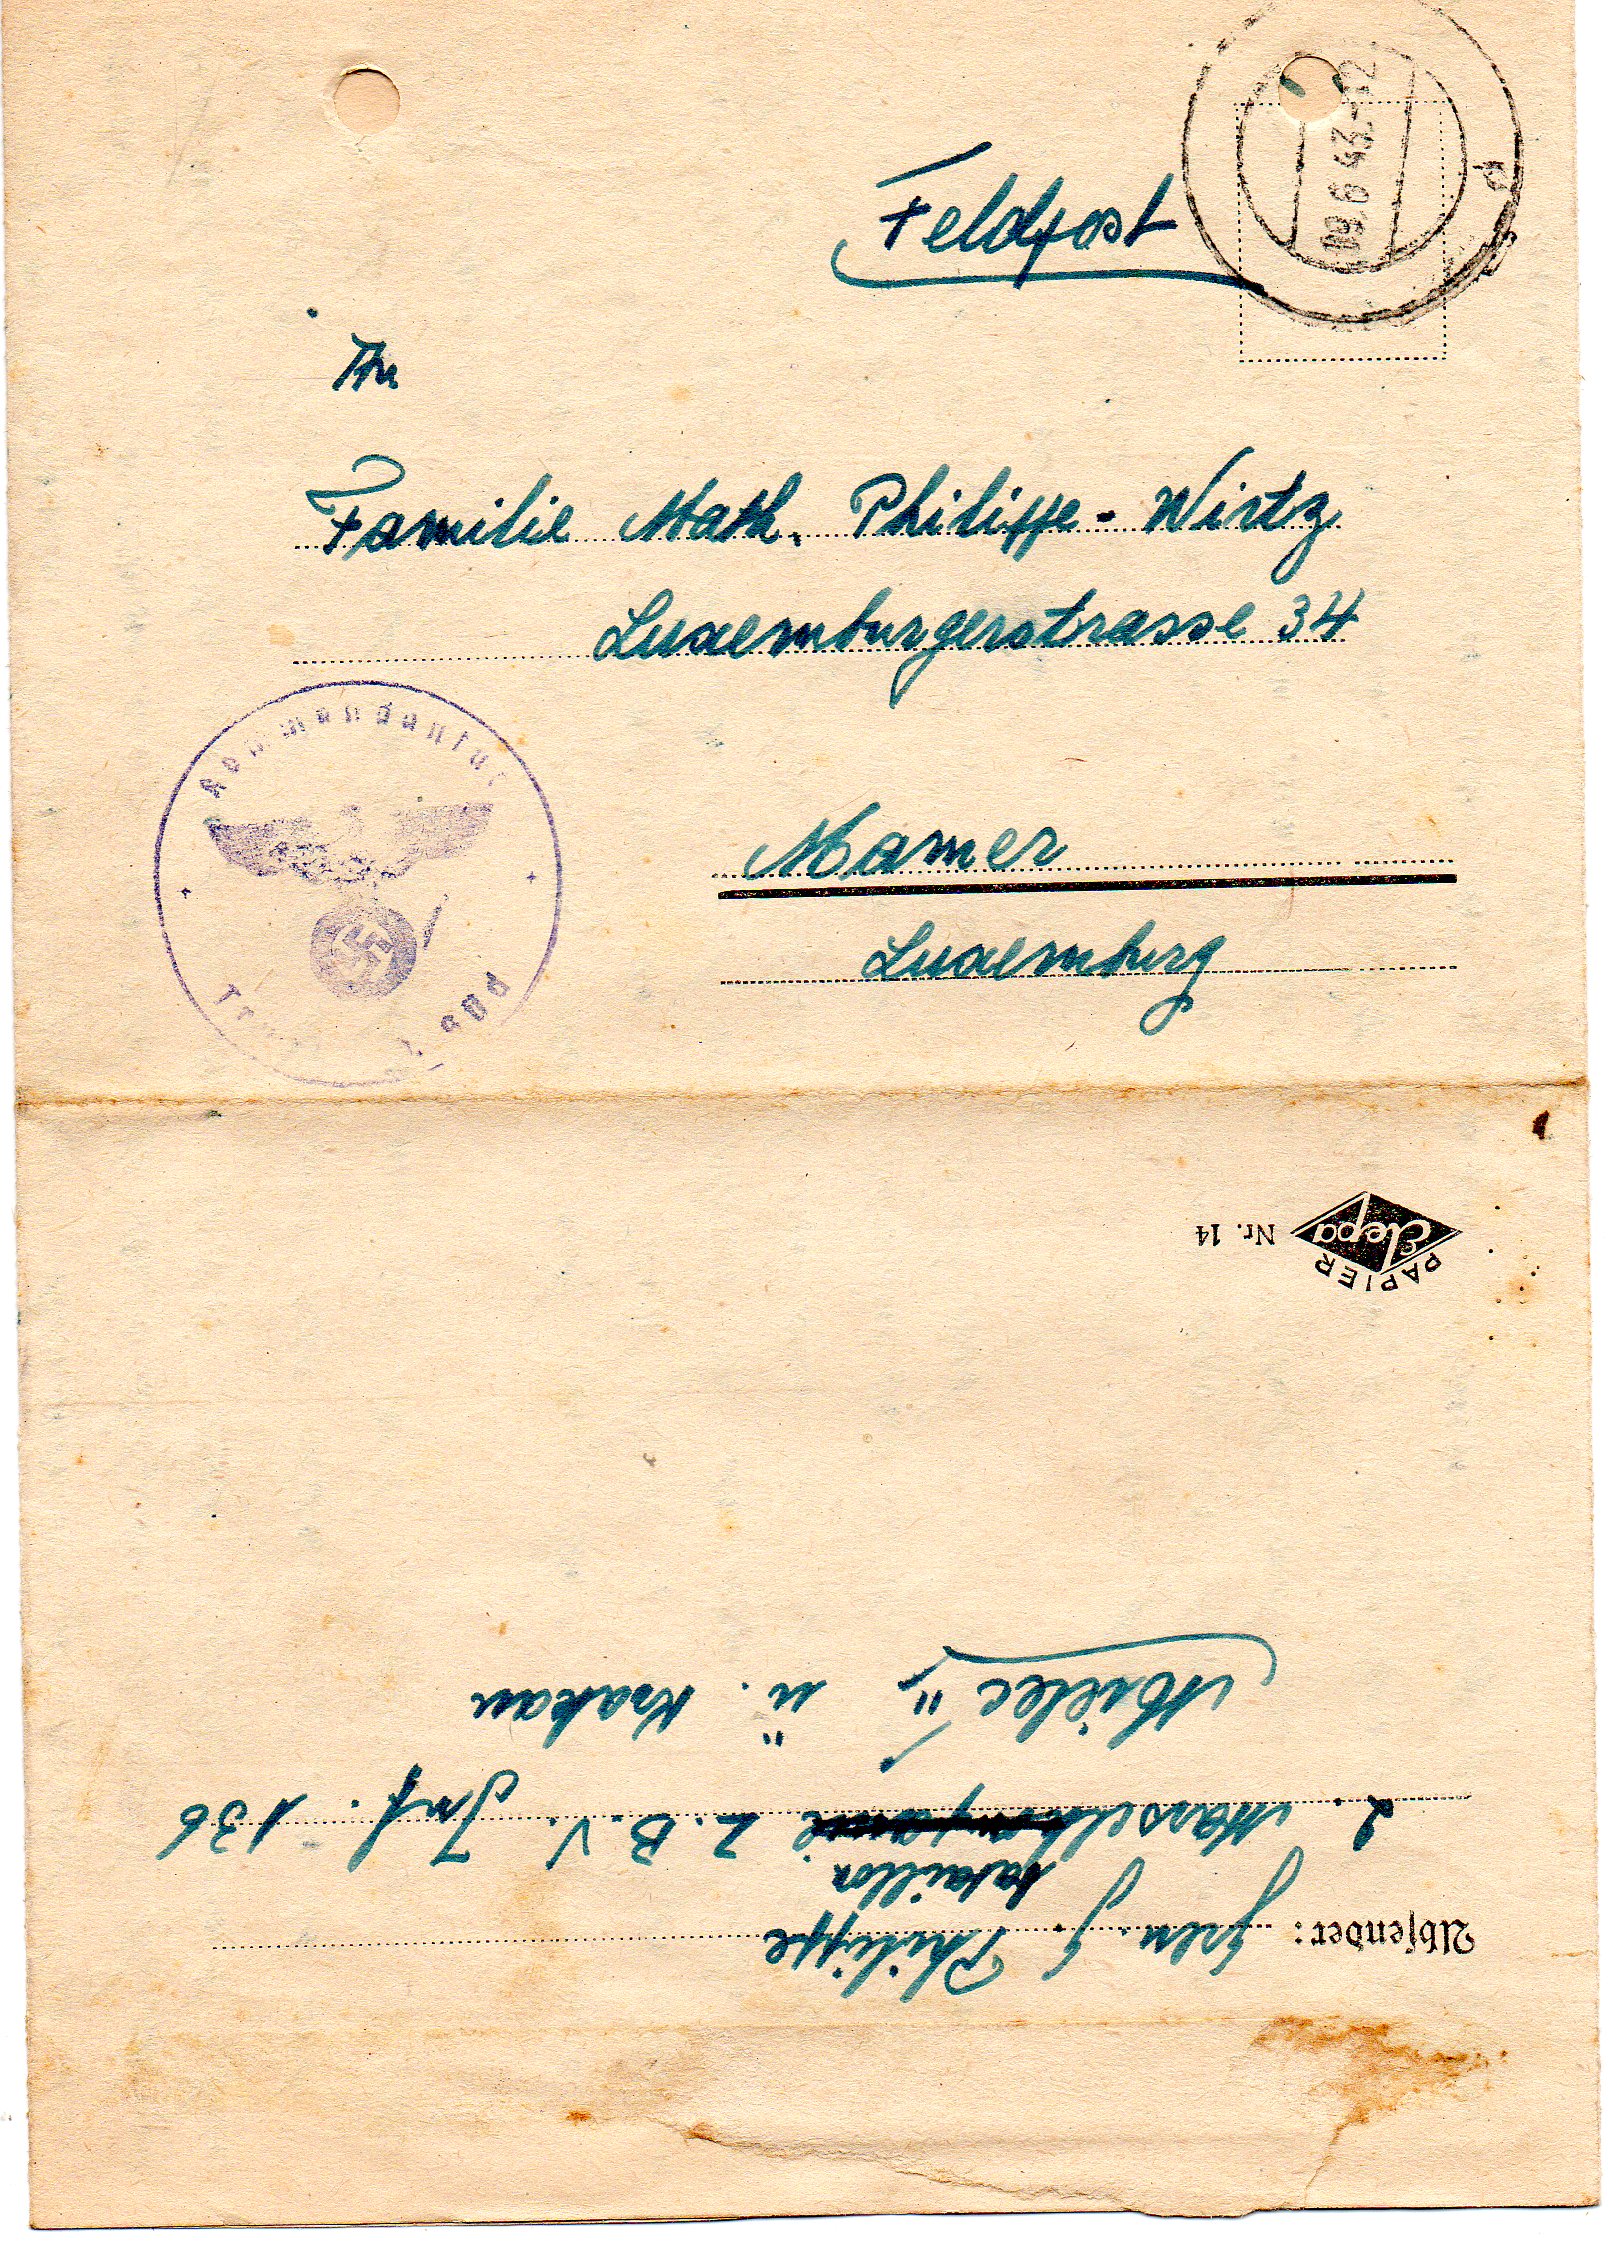 Feldpost
09.6.43.-12
d
An
Familie Math. Philippe - Wirtz
Luxemburgerstrasse 34
Kommandantur
Mamer
Luxemburg
PAPIER
Elepa
Nr. 14
Absender: Gren. J. Philippe
bataillon
2. Marsch Z.B.V. Inf. 136
Mielec ü. Krakau